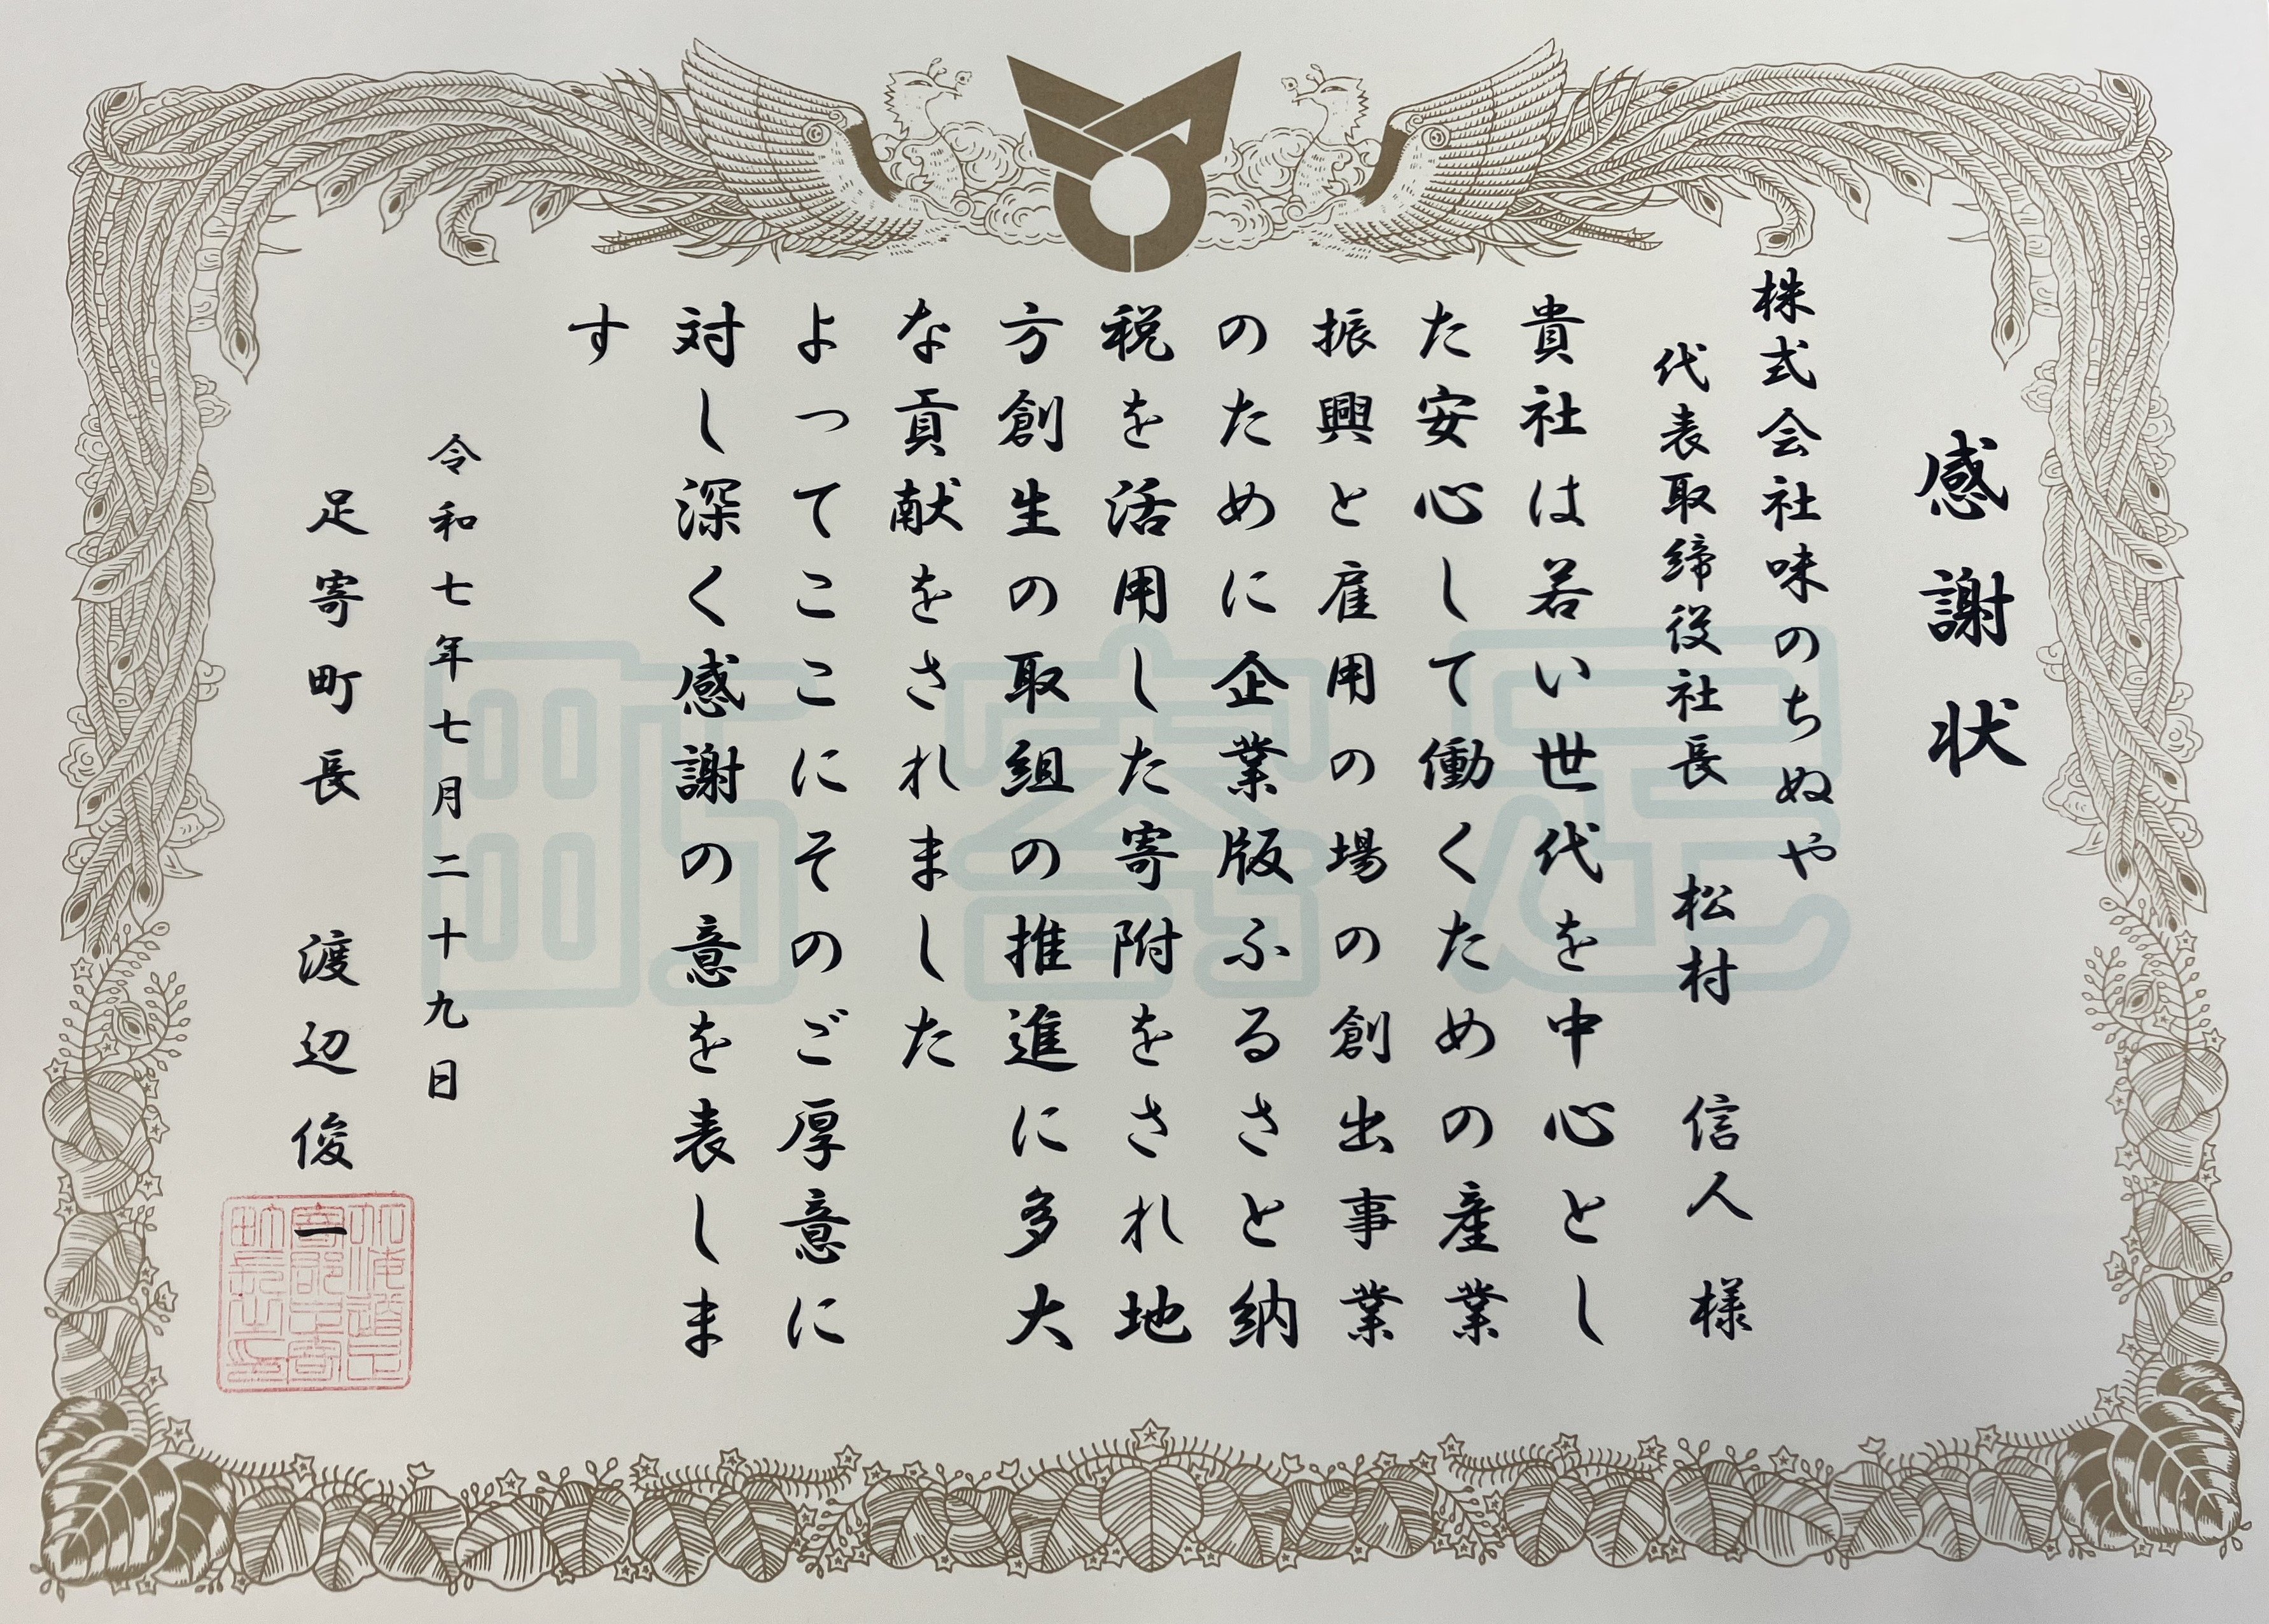 感謝状
株式会社味のちぬや
代表取締役社長 松村 信人 様
貴社は若い世代を中心とし
た安心して働くための産業
振興と雇用の場の創出事業
のために企業版ふるさと納
税を活用した寄附をされ地
方創生の取組の推進に多大
な貢献をされました
よってここにそのご厚意に
対し深く感謝の意を表しま
す
令和七年七月二十九日
足寄町長 渡辺俊一
足寄町